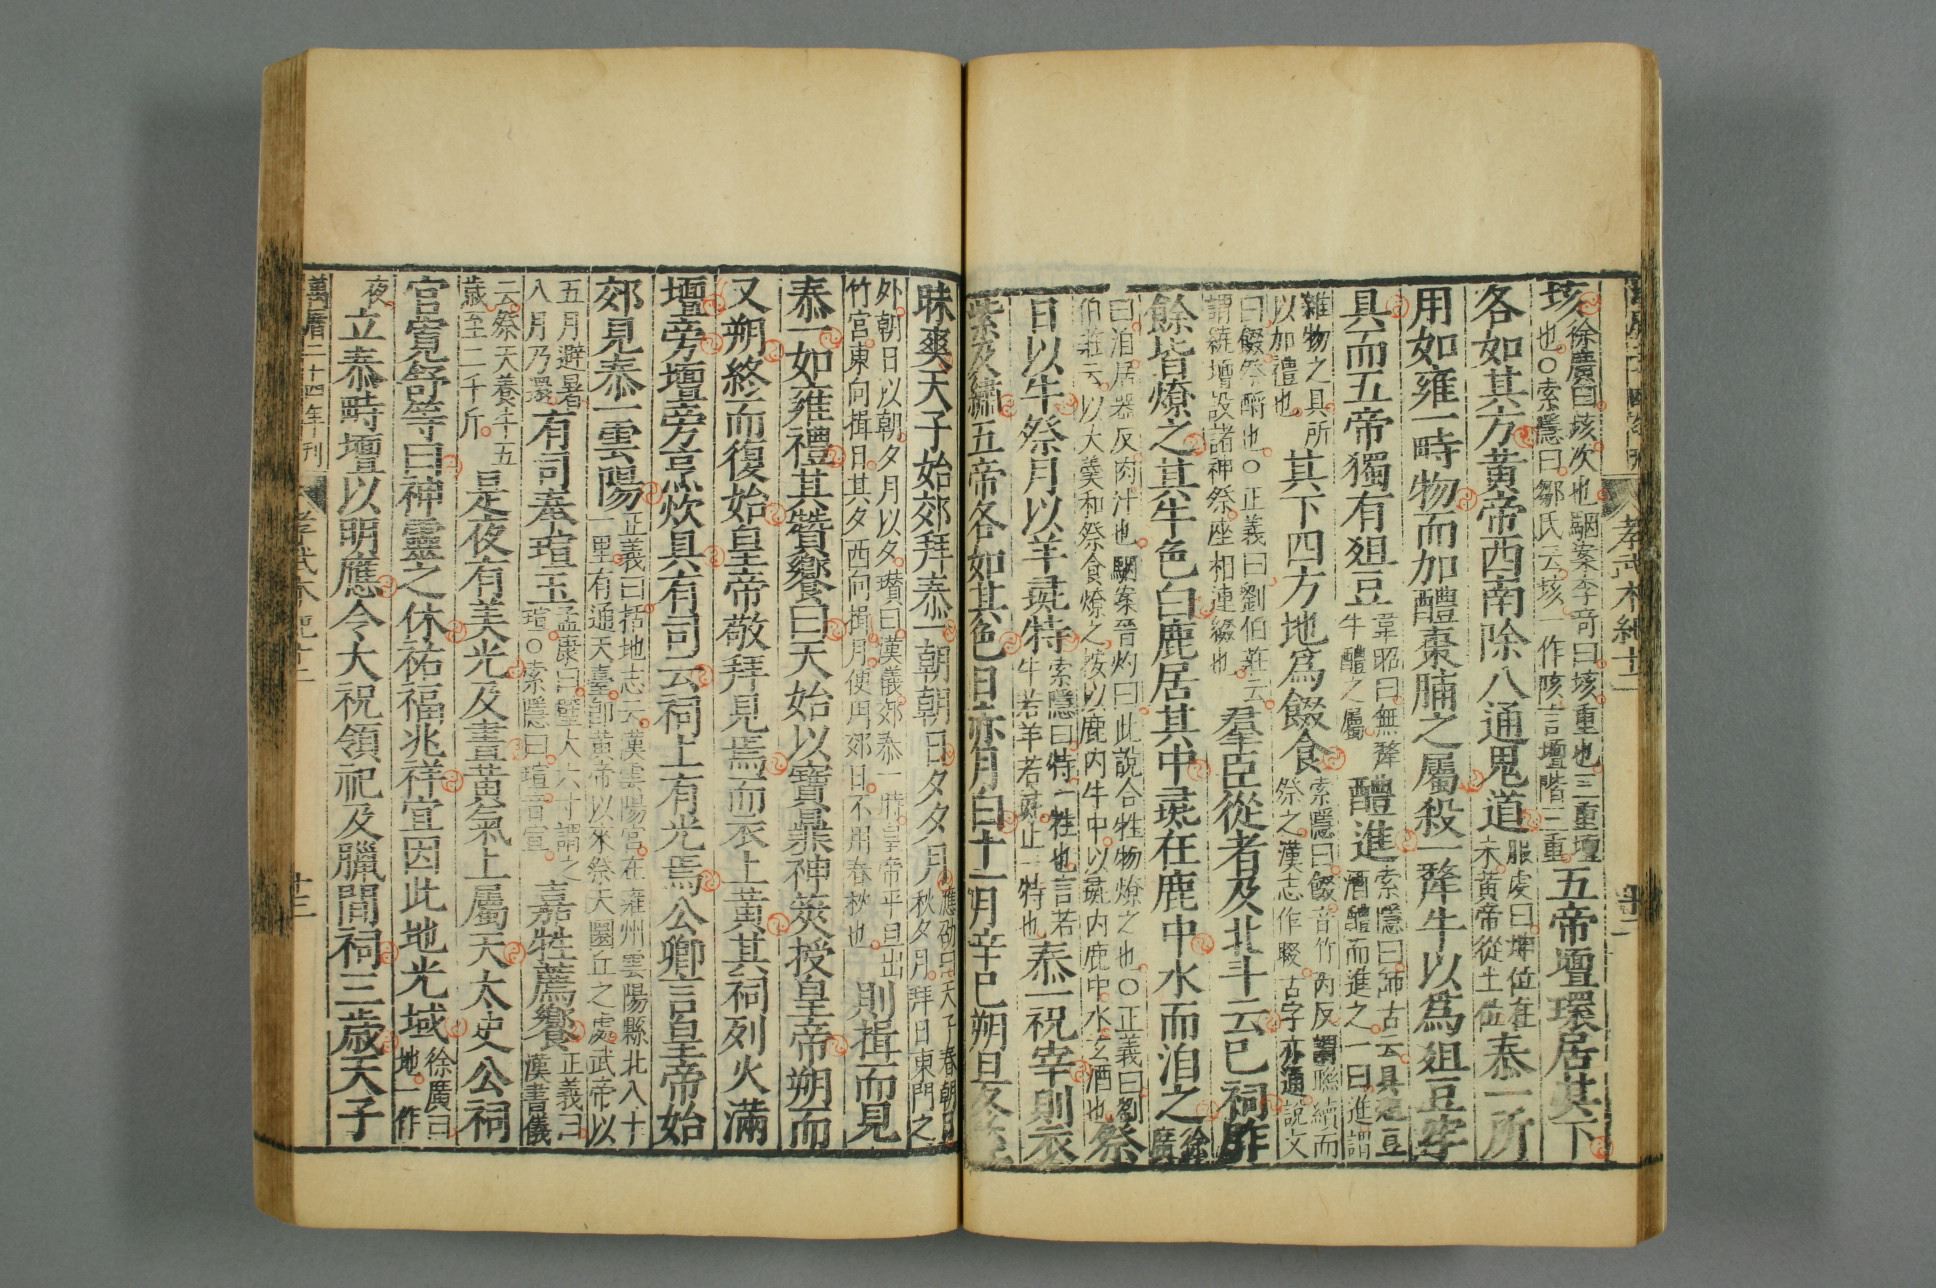 孝武本紀十二
垓徐廣曰垓次也駰案李奇曰垓重也三重壇也○索隱曰鄒氏云垓一作陔言壇階三重五帝壇環居其下
各如其方黃帝西南除八通鬼道服虔曰坤位在未黃帝從土位泰一所
用如雍一畤物而加醴棗脯之屬殺一犛牛以爲俎豆牢
具而五帝獨有俎豆韋昭曰無犛牛醴之屬醴進索隱曰師古云具俎豆酒醴而進之一曰進謂
雜物之具所以加禮也其下四方地爲餟食索隱曰餟音竹芮反謂聯續而祭之漢志作腏古字亦通說文
曰餟祭酹也○正義曰劉伯莊云謂繞壇設諸神祭座相連綴也羣臣從者及北斗云巳祠胙
餘皆燎之其牛色白鹿居其中彘在鹿中水而洎之徐廣
曰洎居器反肉汁也駰案晉灼曰此說合牲物燎之也○正義曰劉伯莊云以大羹和祭食燎之按以鹿內牛中以彘內鹿中水玄酒也祭
日以牛祭月以羊彘特索隱曰特一牲也言若牛若羊若彘止一特也泰一祝宰則衣
紫及繡五帝各如其色日赤月白十一月辛巳朔旦冬至
昧爽天子始郊拜泰一朝朝日夕夕月應劭曰天子春朝日秋夕月拜日東門之
外朝日以朝夕月以夕瓚曰漢儀郊泰一畤皇帝平旦出竹宮東向揖日其夕西向揖月便用郊日不用春秋也則揖而見
泰一如雍禮其贊饗曰天始以寶鼎神筴授皇帝朔而
又朔終而復始皇帝敬拜見焉而衣上黃其祠列火滿
壇旁壇旁烹炊具有司云祠上有光焉公卿言皇帝始
郊見泰一雲陽正義曰括地志云漢雲陽宮在雍州雲陽縣北八十一里有通天臺卽黃帝以來祭天圜丘之處武帝以
五月避暑八月乃還有司奉瑄玉孟康曰璧大六寸謂之瑄○索隱曰瑄音宣嘉牲薦饗正義曰漢書儀
云祭天養牛五歲至二千斤是夜有美光及晝黃氣上屬天太史公祠
官寬舒等曰神靈之休祐福兆祥宜因此地光域徐廣曰地一作
夜立泰畤壇以明應令太祝領祀及臘間祠三歲天子
萬曆二十四年刊 孝武本紀十二 十三